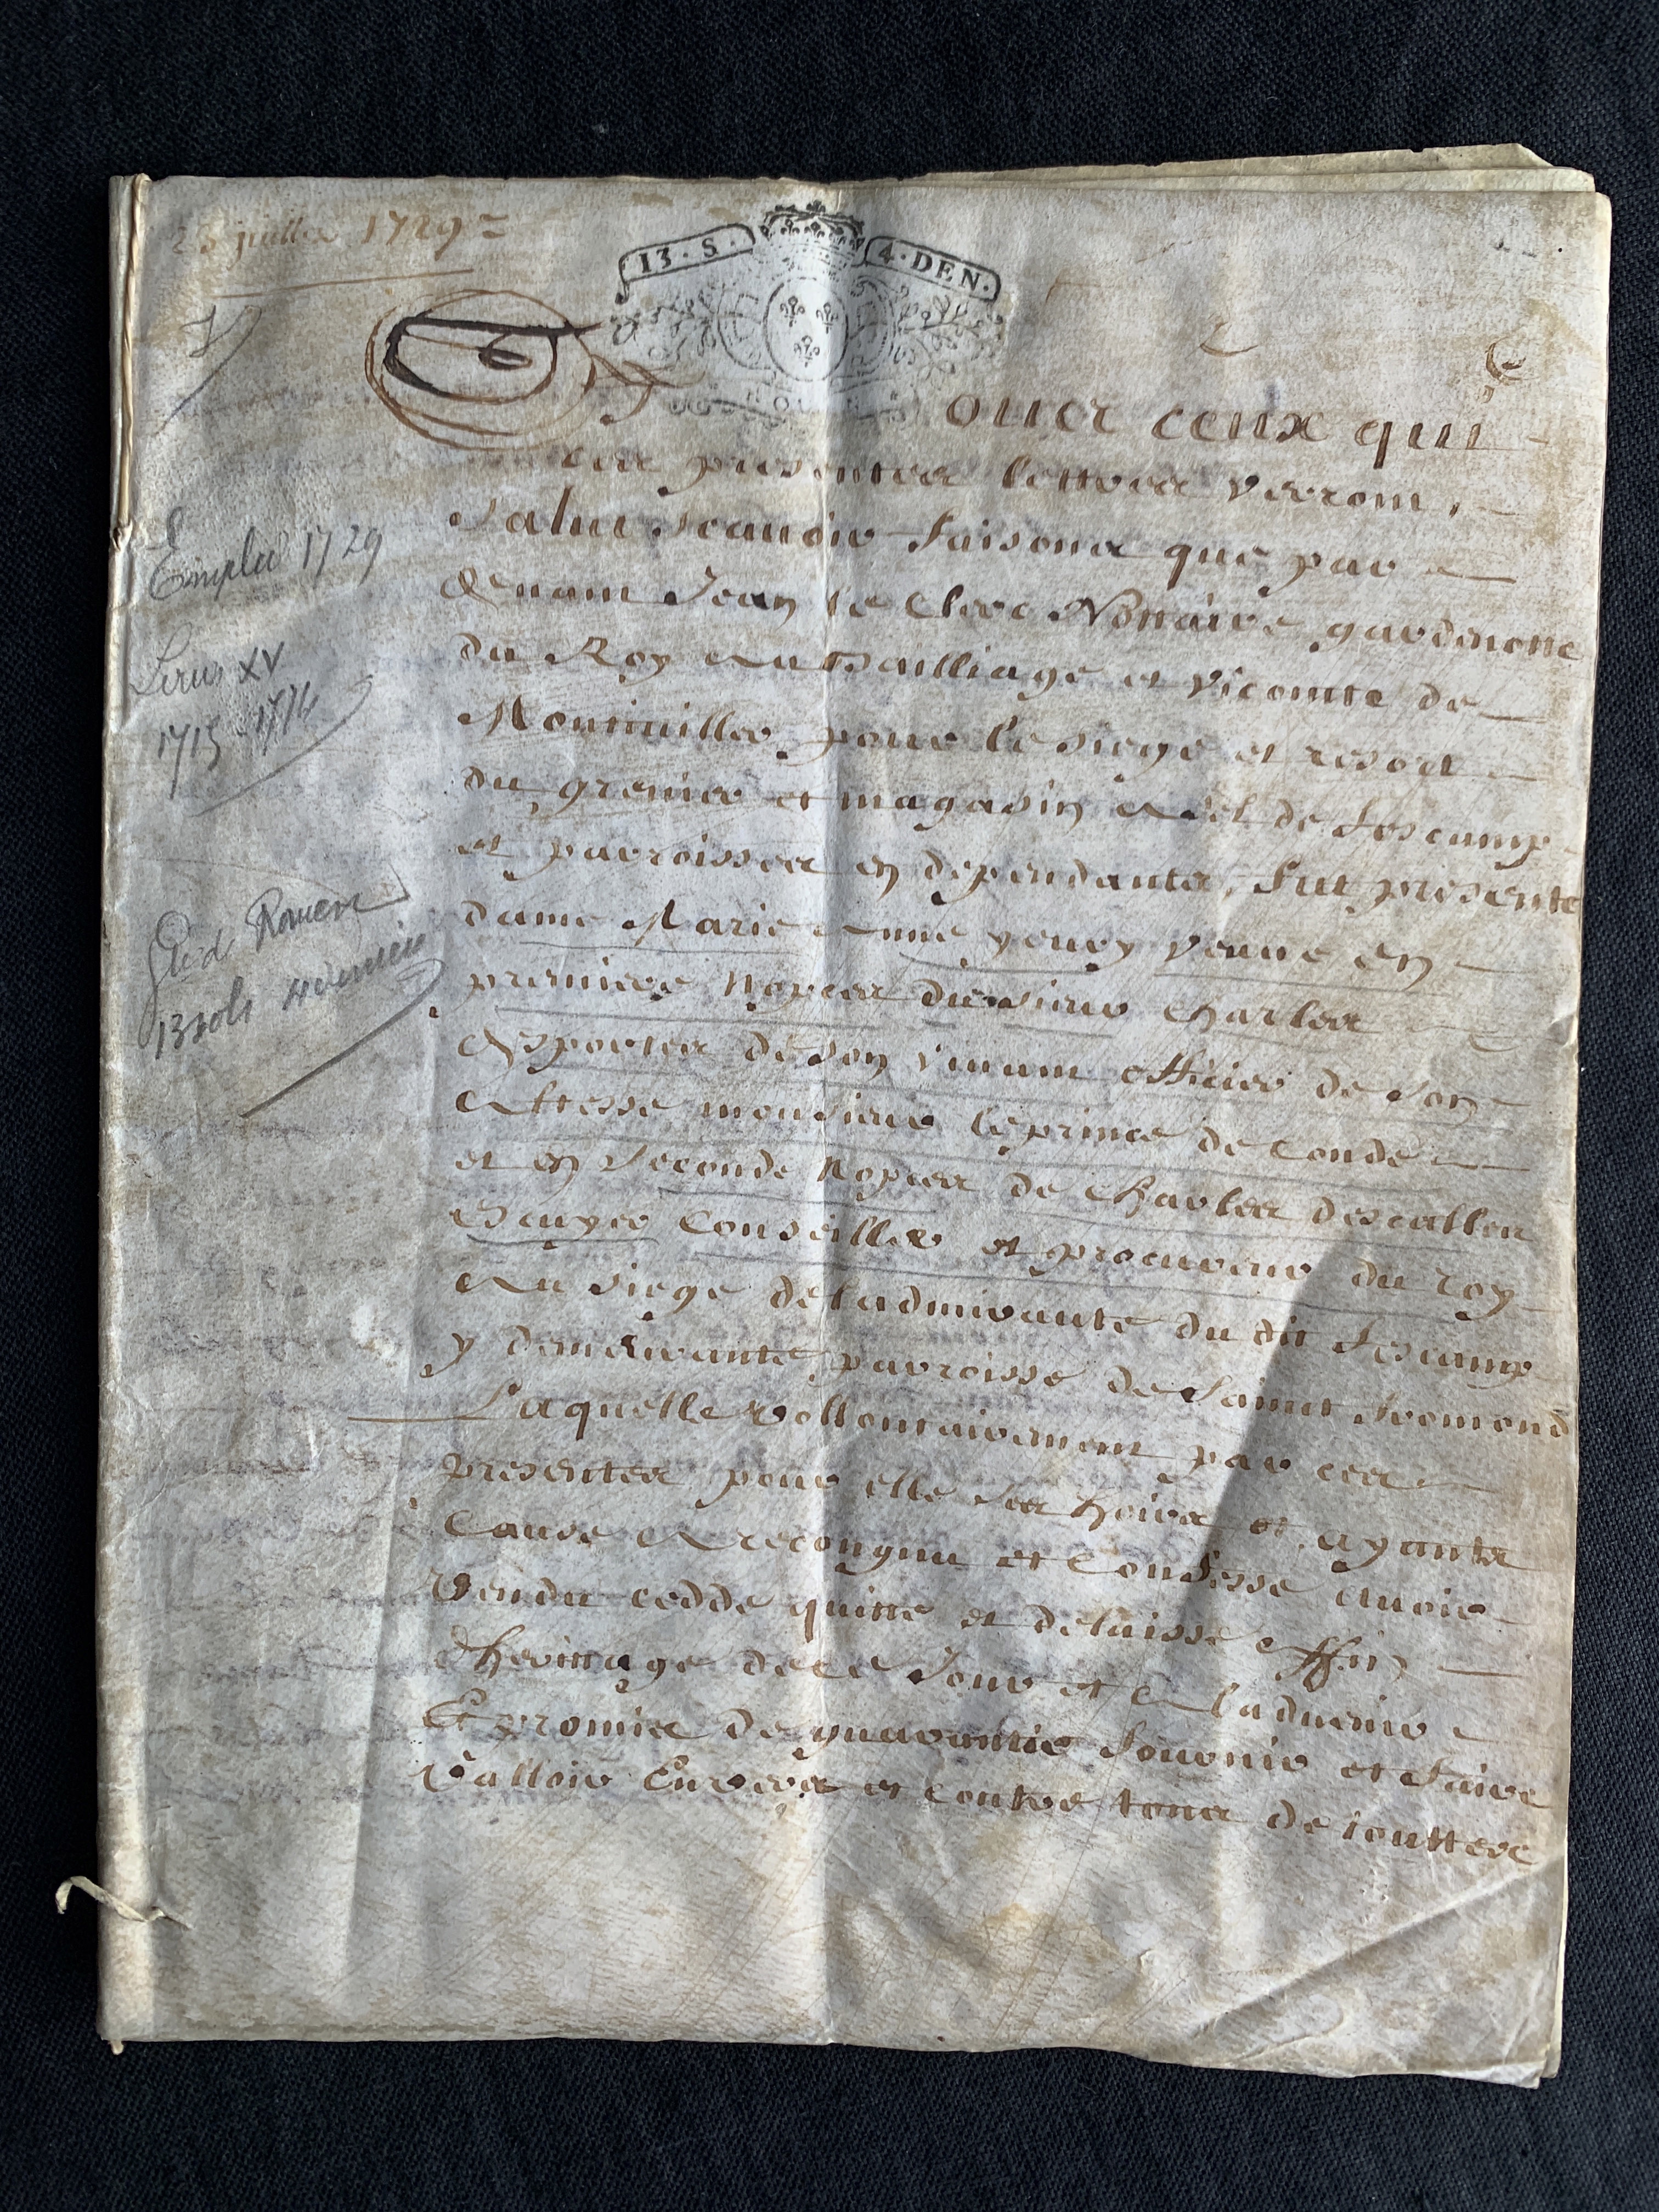 23 juillet 1729
13 . S . 4 . DEN .
A tous ceux qui
ces presentes lettres verront
Salut Scavoir faisons que par
devant Jean le Clerc Nottaire gardenotte
du Roy au Bailliage et Vicomté de
Montivillier pour le siege et resort
du grenier et magasin a sel de fescamp
et parroisses en dependantes, fut presente
dame Marie Anne youey veuve en
premiere Nopces du sieur Charles
de son vivant officier de son
Altesse monsieur le prince de Condé
et en seconde Nopces de Charles descallen
Escuyer Conseiller et procureur du roy
au siege de ladmirauté du dit fescamp
y demeurante parroisse de Saint fromond
Laquelle vollontairement par ces
presentes pour elle ses hoirs et ayants
Cause a recongnu et Confesse avoir
Vendu cedde quitte et delaisse affin
dheritage de ce Jour et a ladvenir
Et promis de guarantir fournir et faire
Valloir Envers et contre tous de touttes
1729
Louis XV
1715-1774
Gd Rouen
13 sols